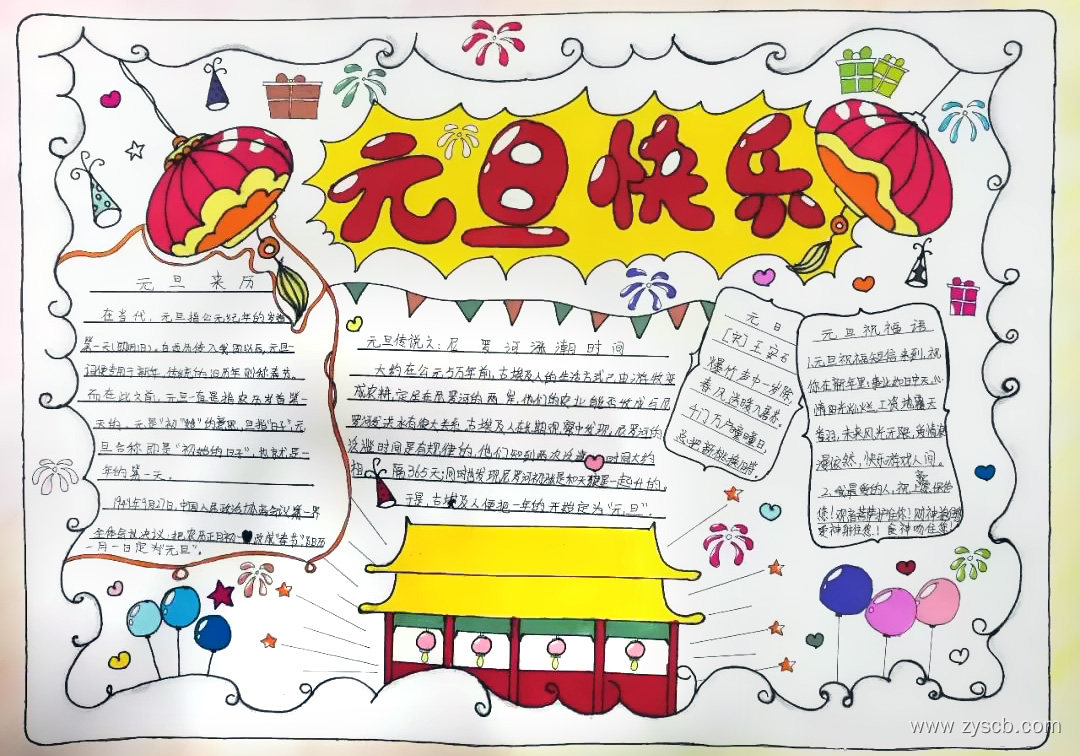 元旦快乐
元旦来历
在当代，元旦指公元纪年的岁首
第一天(即阳历)。自西历传入我国以后,元旦一
词便专用于新年，传统的旧历年则称春节。
而在此之前，元旦一直是指农历岁首第一
天的。元是"初""始"的意思，旦指"日子",元
旦合称即是"初始的日子"，也就是一
年的第一天。
1949年9月27日,中国人民政治协商会议第一界
全体会议决议：把农历正月初一改成"春节"阳历
一月一日定为"元旦"。
元旦传说之：尼罗河涨潮时间
大约在公元5万年前,古埃及人的生活方式已由游牧变
成农耕,定居在尼罗河的两岸,他们的农业能否收成与尼
罗河发洪水有很大关系.古埃及人在长期观察中发现,尼罗河的
泛滥时间是有规律的,他们知到两次泛滥时间大约
相隔365天;同时发现尼罗河初涨是和天狼星一起升的。
于是,古埃及人便把一年的开始定为"元旦"
元日
[宋]王安石
爆竹声中一岁除
春风送暖入屠苏。
千门万户曈曈日,
总把新桃换旧符。
元旦祝福语
1.元旦祝福短信来到，祝
你在新年里：事业如日中天,心
情阳光灿烂,工资
未来风光无限,爱情
依然，快乐游戏人间。
2、我最爱的人,祝上帝保佑
您！观音菩萨护住你！财神
爱神射住您！食神吻住您！
www.zyscb.com